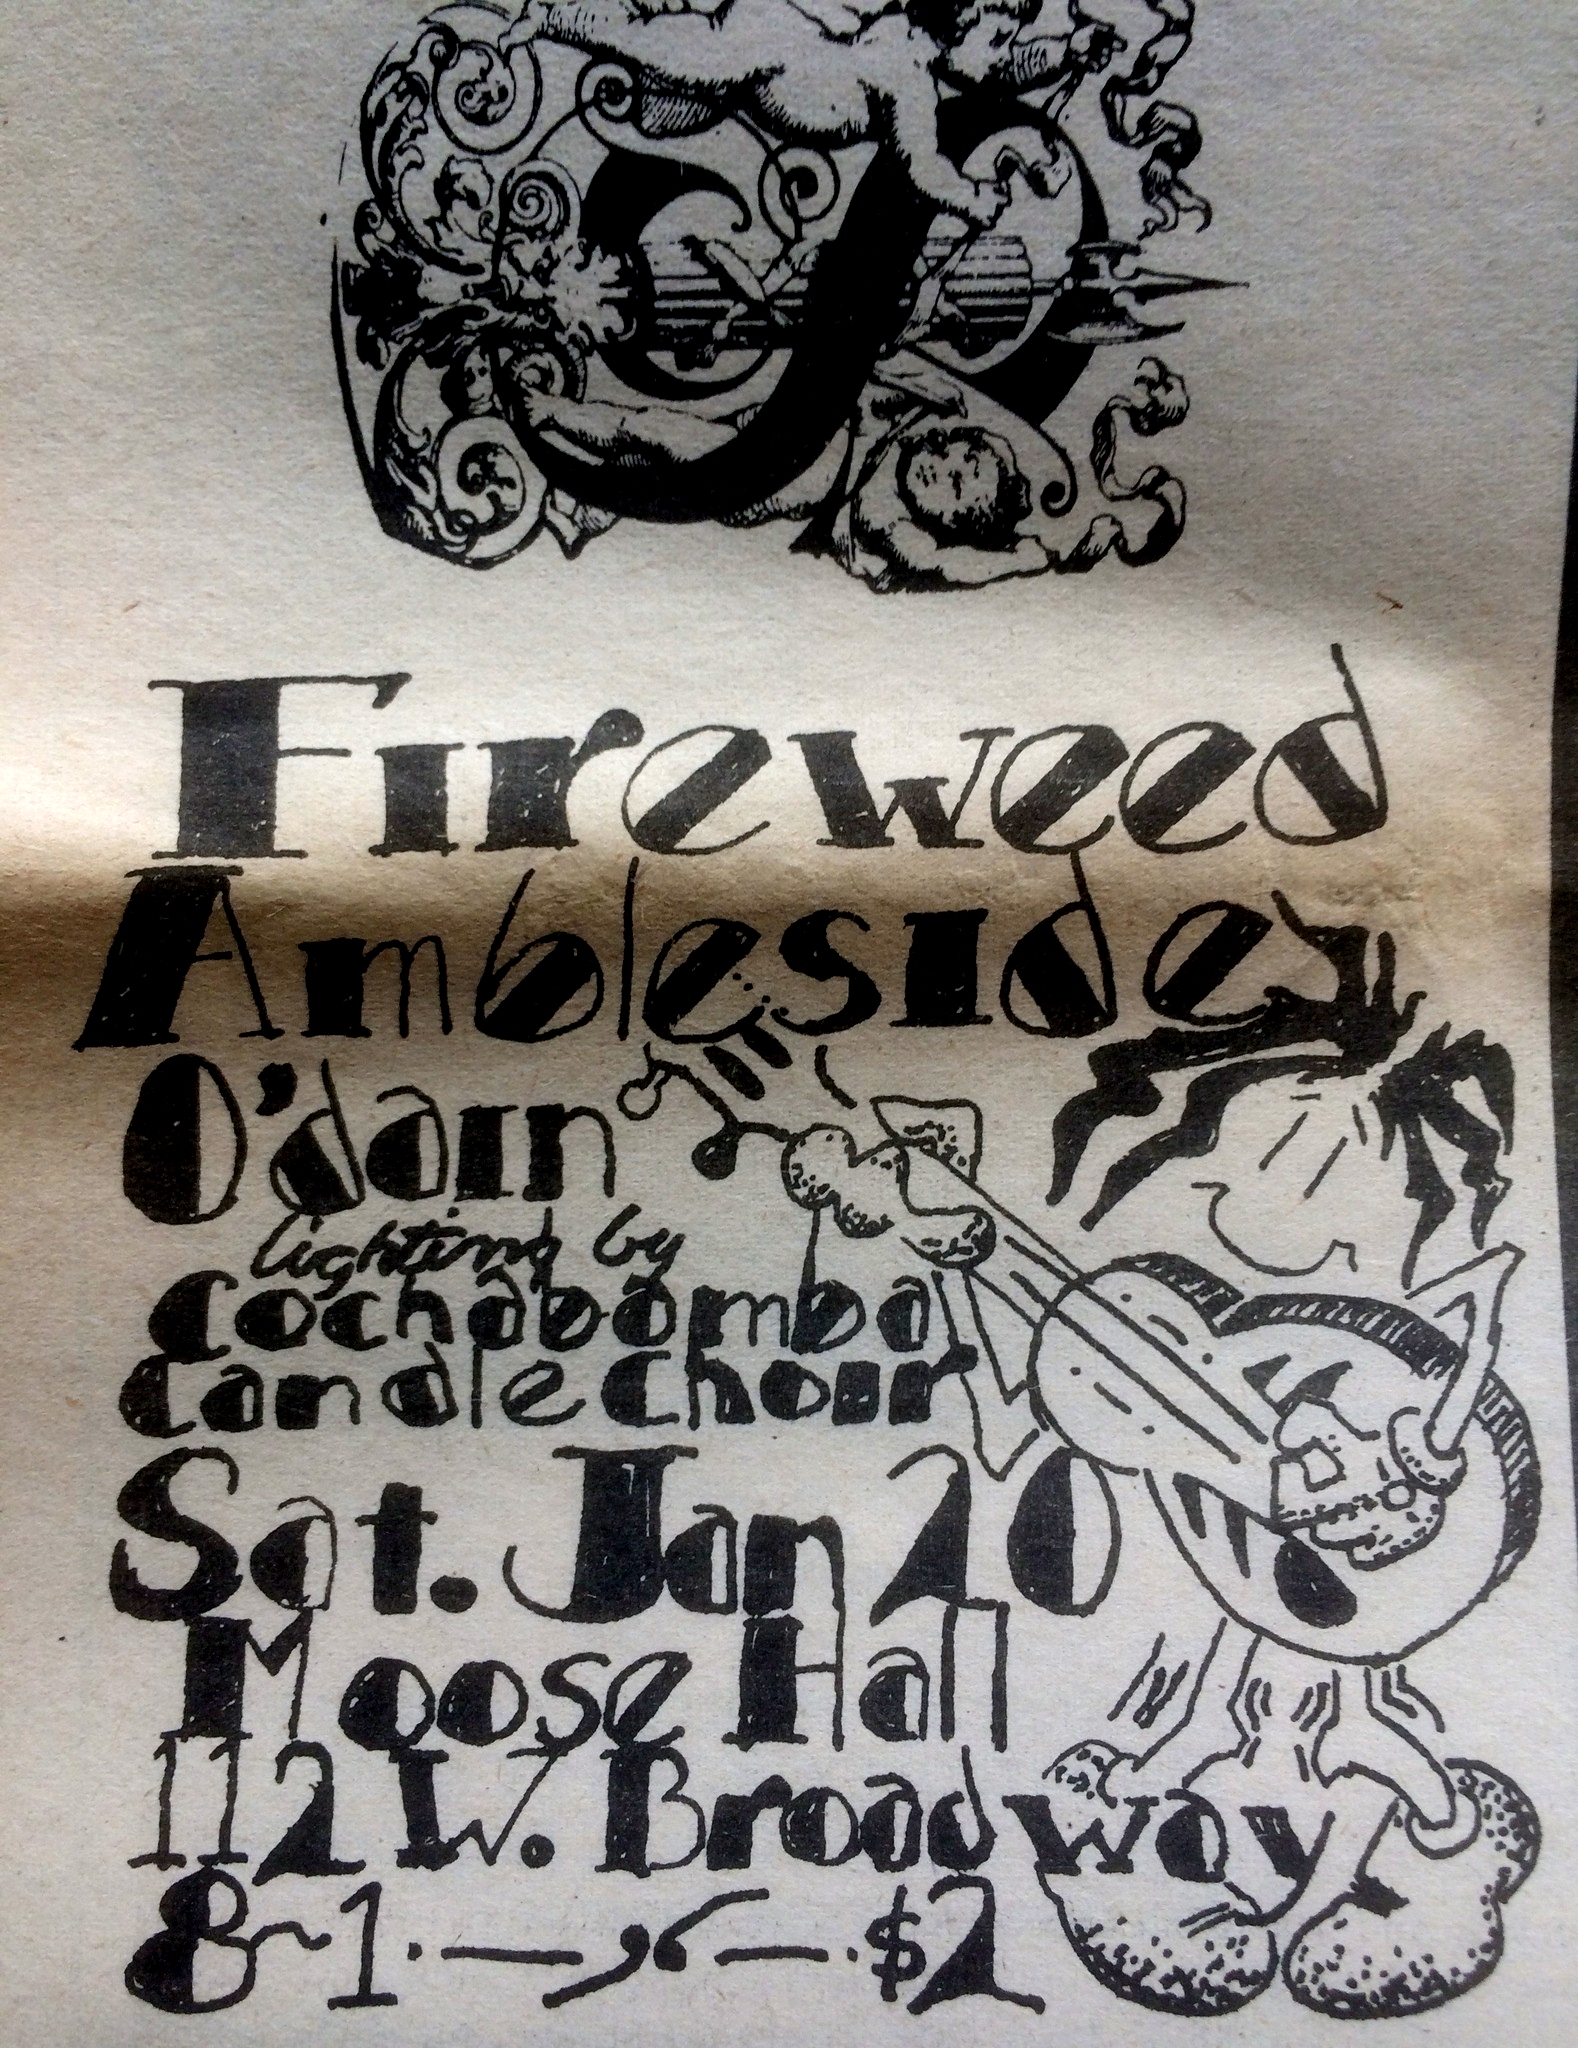 Fireweed
Ambleside
O'dain
lighting by
Cochabamba
Candle Choir
Sat. Jan 20
Moose Hall
112 W. Broadway
8~1 · — , ‘ — · $2